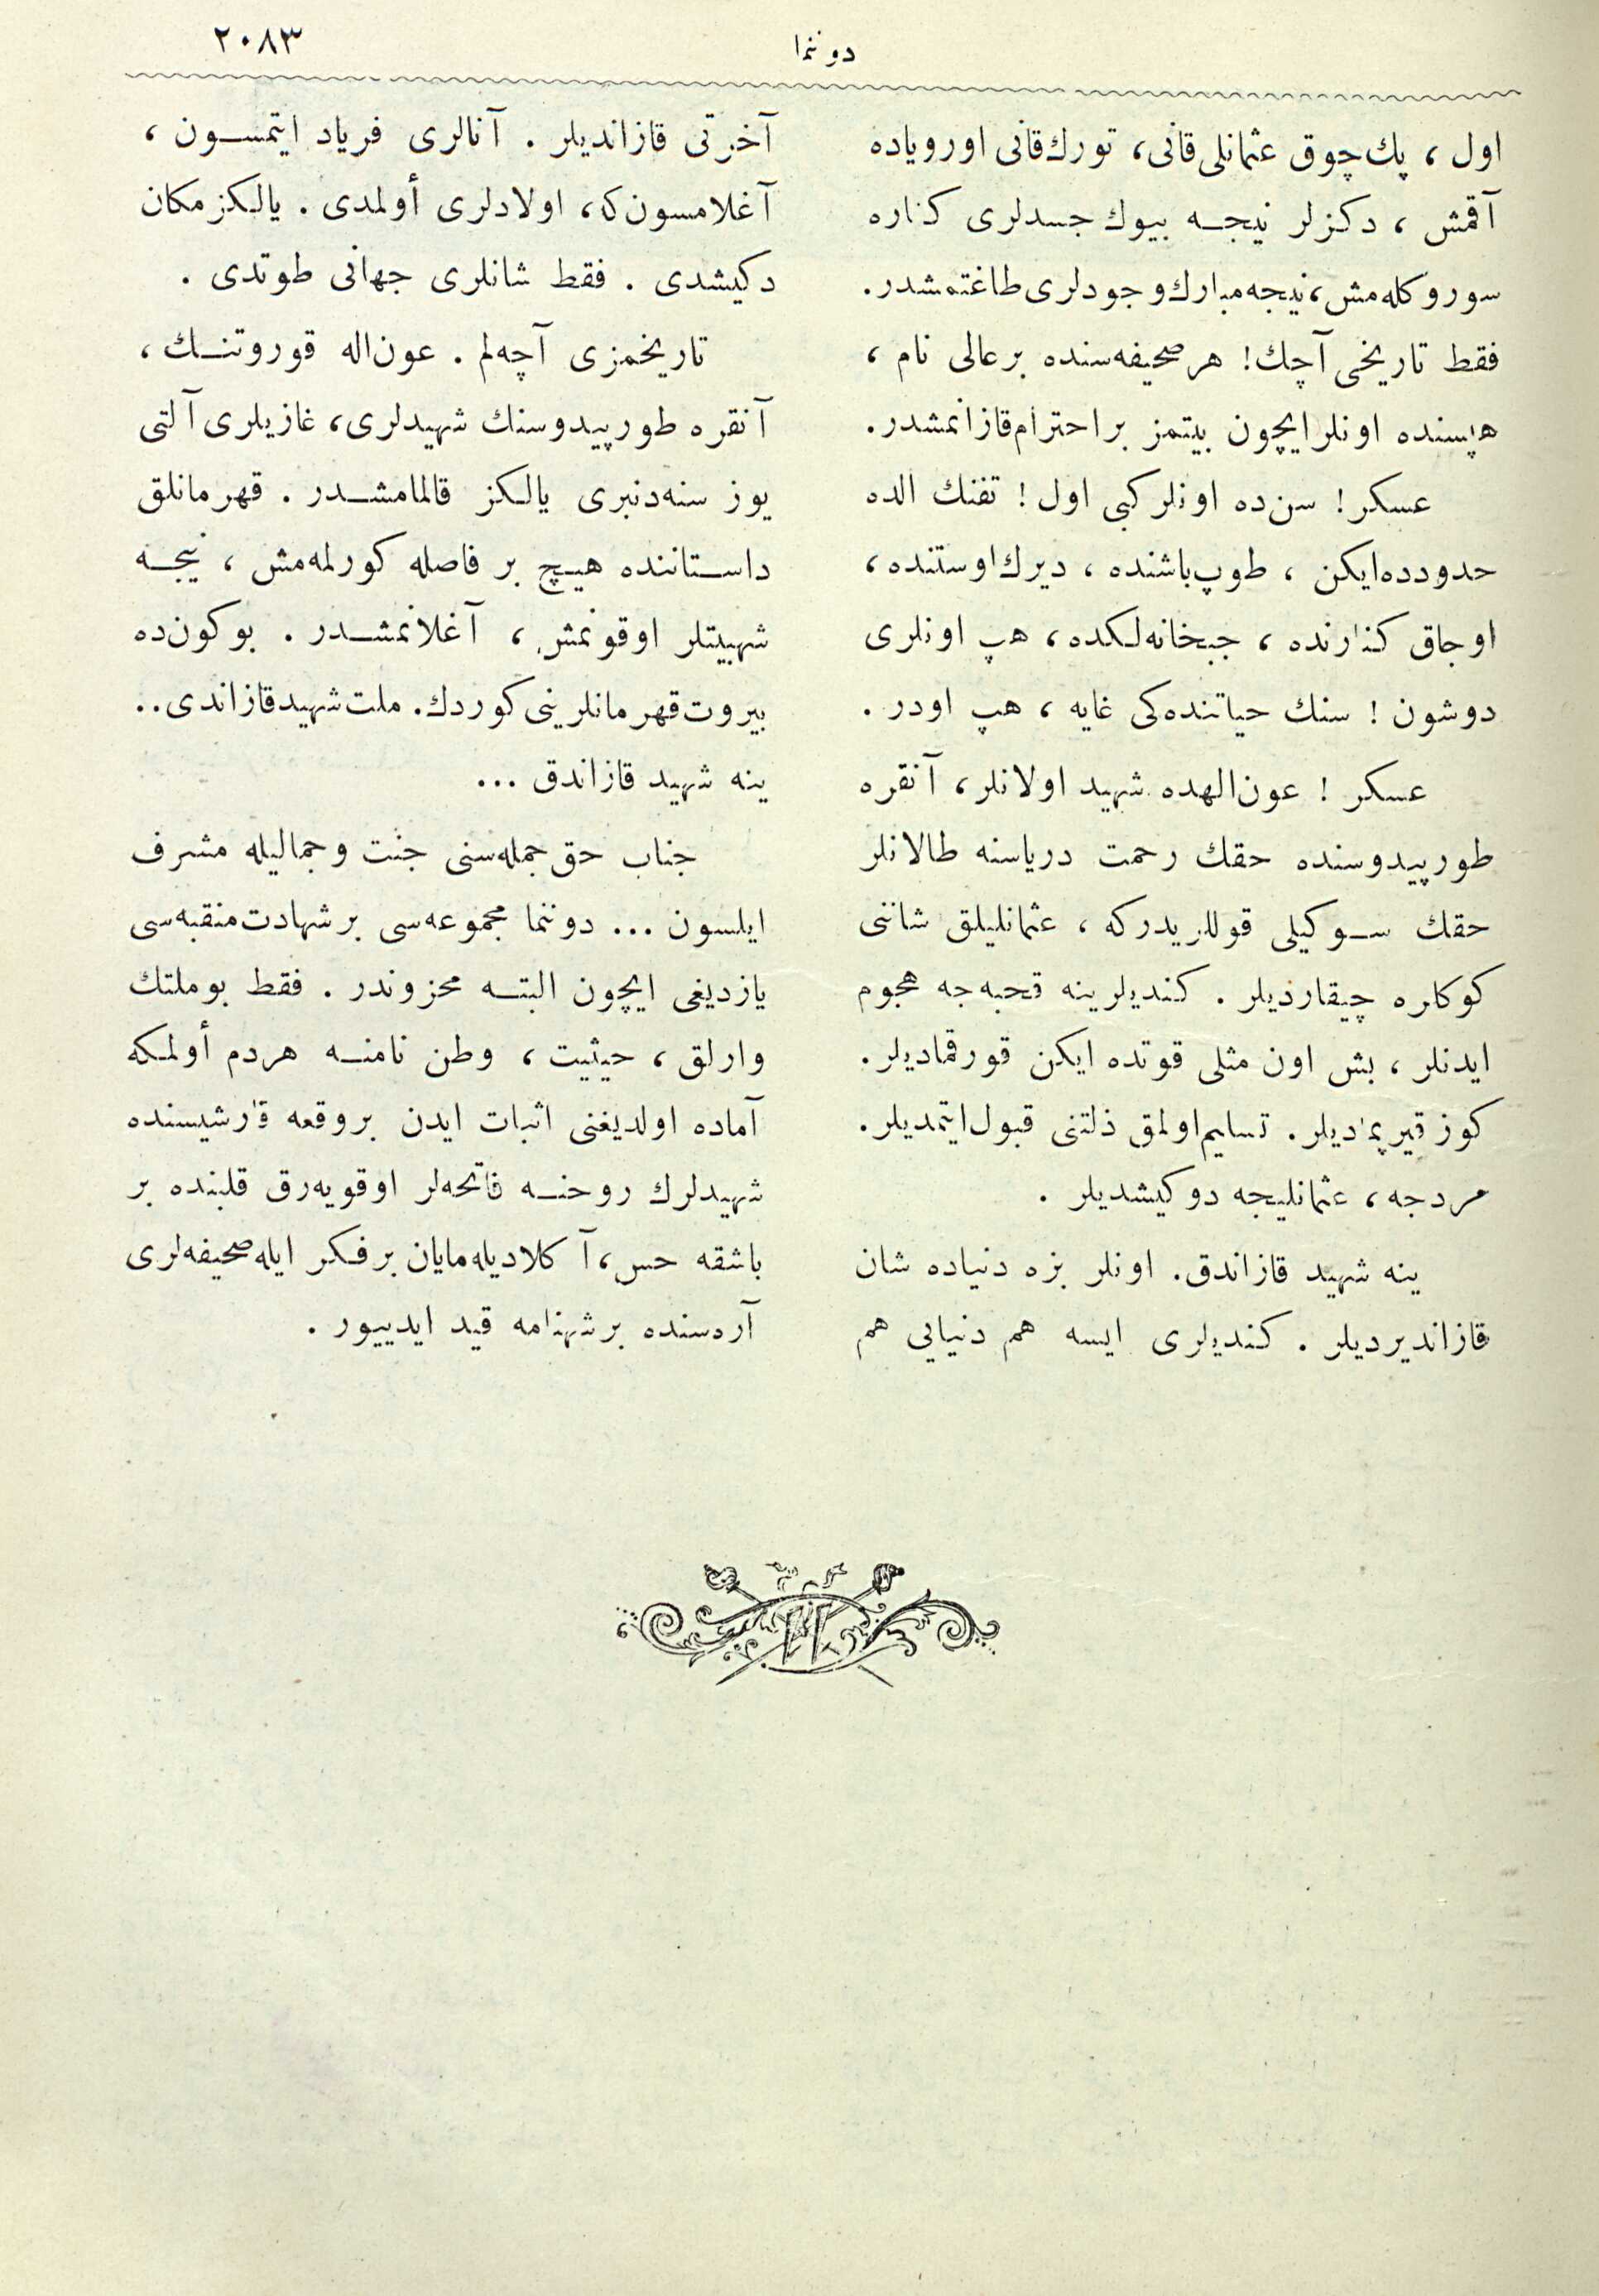 دوننما
٢٠٨٣
اول ، پك چوق عثمانلی قانی، تورك قانی اوروپاده
آقمش ، دكزلر نیجه بیوك جسدلری كناره
سوروكله‌مش، نیجه مبارك وجودلری طاغتمشدر.
فقط تاریخی آچك! هر صحیفه‌سنده بر عالی نام ،
هپسنده اونلر ایچون بیتمز بر احترام قازانمشدر.
عسكر ! سن ده اونلر كبی اول ! تفنك الده
حدودده ایكن ، طوپ باشنده ، دیرك اوستنده ،
اوجاق كنارنده ، جبخانه‌لكده ، هپ اونلری
دوشون ! سنك حیاتنده كی غایه ، هپ اودر .
عسكر ! عون‌الهده شهید اولانلر، آنقره
طورپیدوسنده حقك رحمت دریاسنه طالانلر
حقك سوكیلی قوللریدركه ، عثمانلیلق شاننی
كوكلره چیقاردیلر . كندیلرینه قحبه‌جه هجوم
ایدنلر ، بش اون مثلی قوتده ایكن قورقمادیلر.
كوز قیرپمادیلر. تسلیم اولمق ذلتنی قبول ایتمدیلر.
مردجه ، عثمانلیجه دوكیشدیلر .
ینه شهید قازاندق. اونلر بزه دنیاده شان
قازاندیردیلر . كندیلری ایسه هم دنیایی هم
آخرتی قازاندیلر . آنالری فریاد ایتمسون ،
آغلامسون كه، اولادلری أولمدی . یالكز مكان
دكیشدی . فقط شانلری جهانی طوتدی .
تاریخمزی آچه‌لم . عون‌اله قوروتنك ،
آنقره طورپیدوسنك شهیدلری، غازیلری آلتی
یوز سنه‌دنبری یالكز قالمامشدر . قهرمانلق
داستاننده هیچ بر فاصله كورلمه‌مش ، نیجه
شهیتلر اوقونمش ، آغلانمشدر . بوكون ده
بیروت قهرمانلرینی كوردك. ملت شهید قازاندی..
ینه شهید قازاندق ...
جناب حق جمله‌سنی جنت وجمالیله مشرف
ایلسون ... دوننما مجموعه‌سی بر شهادت منقبه‌سی
یازدیغی ایچون البته محزوندر . فقط بو ملتك
وارلق ، حیثیت ، وطن نامنه هردم أولمكه
آماده اولدیغنی اثبات ایدن بر وقعه قارشیسنده
شهیدلرك روحنه فاتحه‌لر اوقویه‌رق قلبنده بر
باشقه حس، آكلادیله‌مایان بر فكر ایله صحیفه‌لری
آره‌سنده بر شهنامه قید ایدییور .